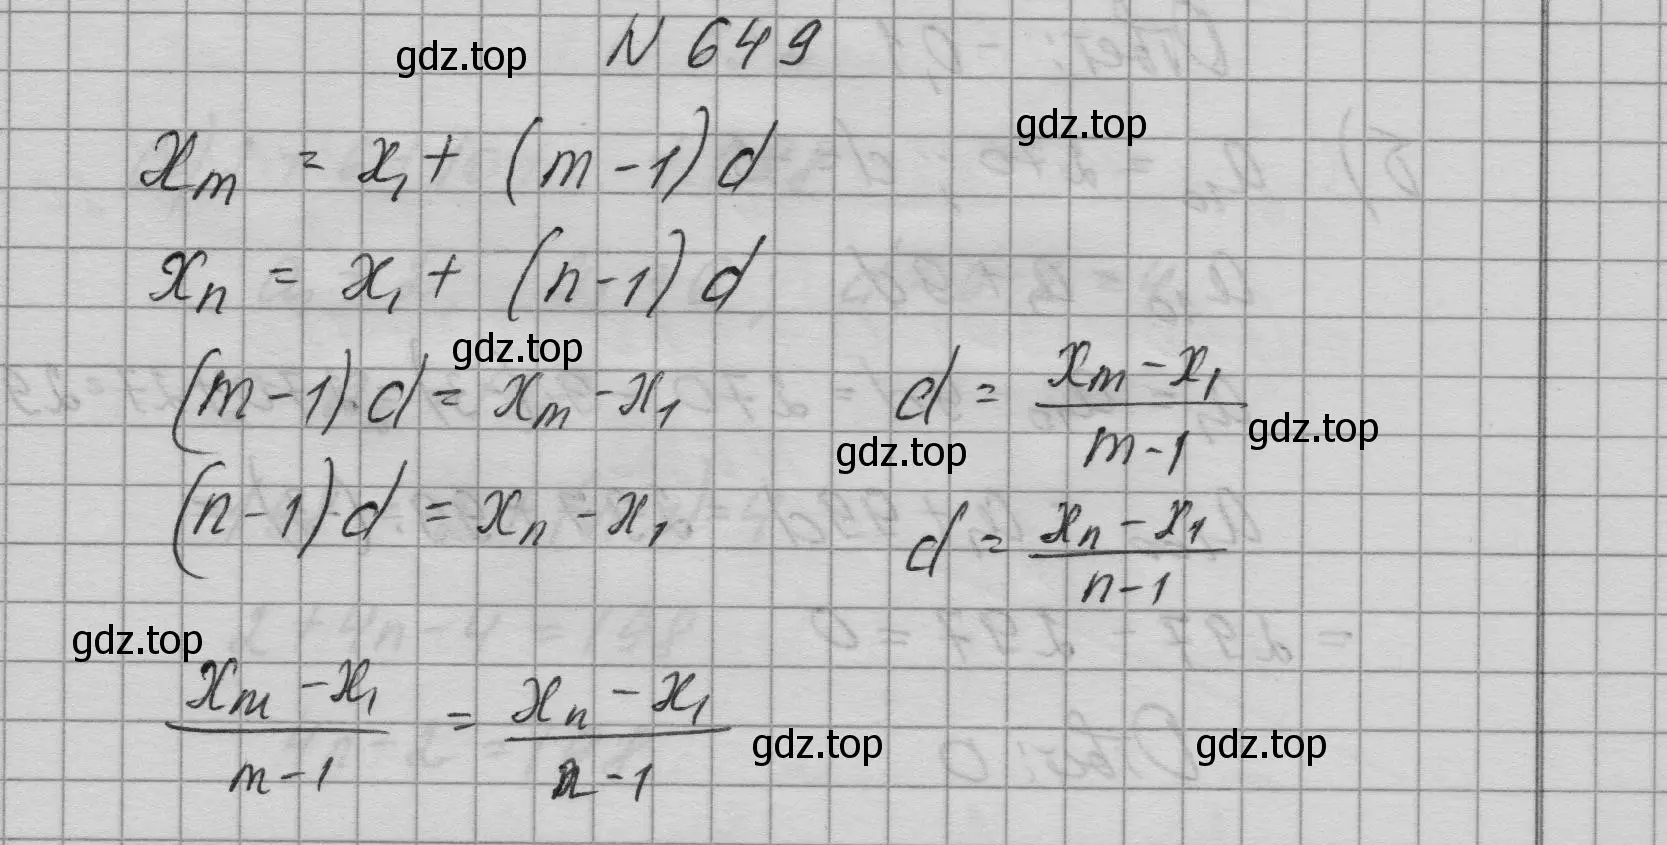 N 649
gdz.top
gdz.top
xₘ = x₁ + (m-1) d
xₙ = x₁ + (n-1) d
gdz.top
(m-1)·d = xₘ - x₁
d = (xₘ - x₁)/(m-1)
gdz.top
gdz.top
(n-1)·d = xₙ - x₁
d = (xₙ - x₁)/(n-1)
gdz.top
(xₘ - x₁)/(m-1) = (xₙ - x₁)/(n-1)
gdz.top
gdz.top